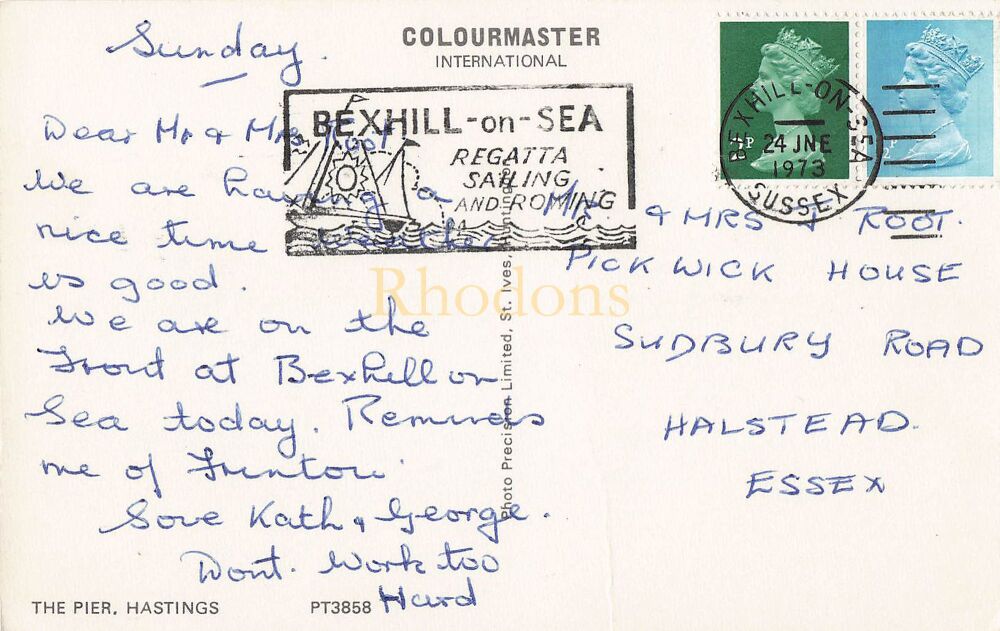 Sunday.
COLOURMASTER
INTERNATIONAL
BEXHILL-on-SEA
REGATTA
SAILING
AND ROMING
BEXHILL-ON-SEA
24 JNE
1973
SUSSEX
Dear Mr & Mrs Root
We are having a
nice time Weather
is good.
We are on the
Front at Bexhill on
Sea today. Reminds
me of Frinton.
Love Kath & George.
Dont. Work too
Hard
Mr & MRS Root.
PICKWICK HOUSE
SUDBURY ROAD
HALSTEAD.
ESSEX
Rhodons
Photo Precision Limited, St. Ives,
THE PIER, HASTINGS
PT3858